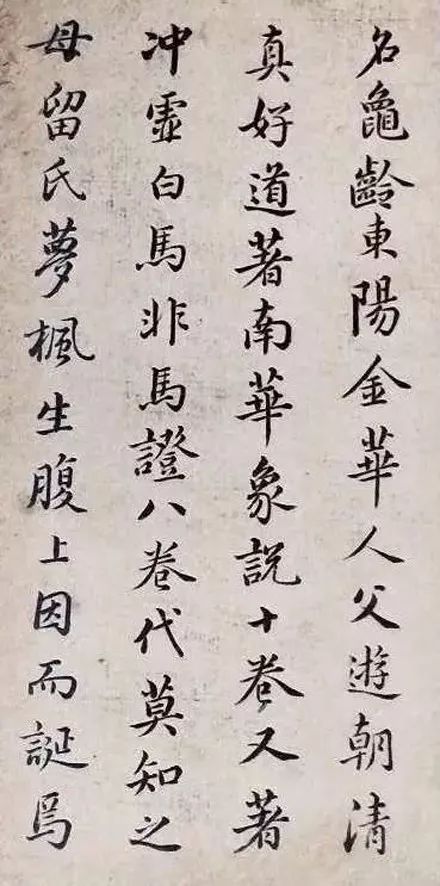 名龜齡東陽金華人父遊朝清
真好道著南華象說十卷又著
冲虛白馬非馬證八卷代莫知之
母留氏夢楓生腹上因而誕焉